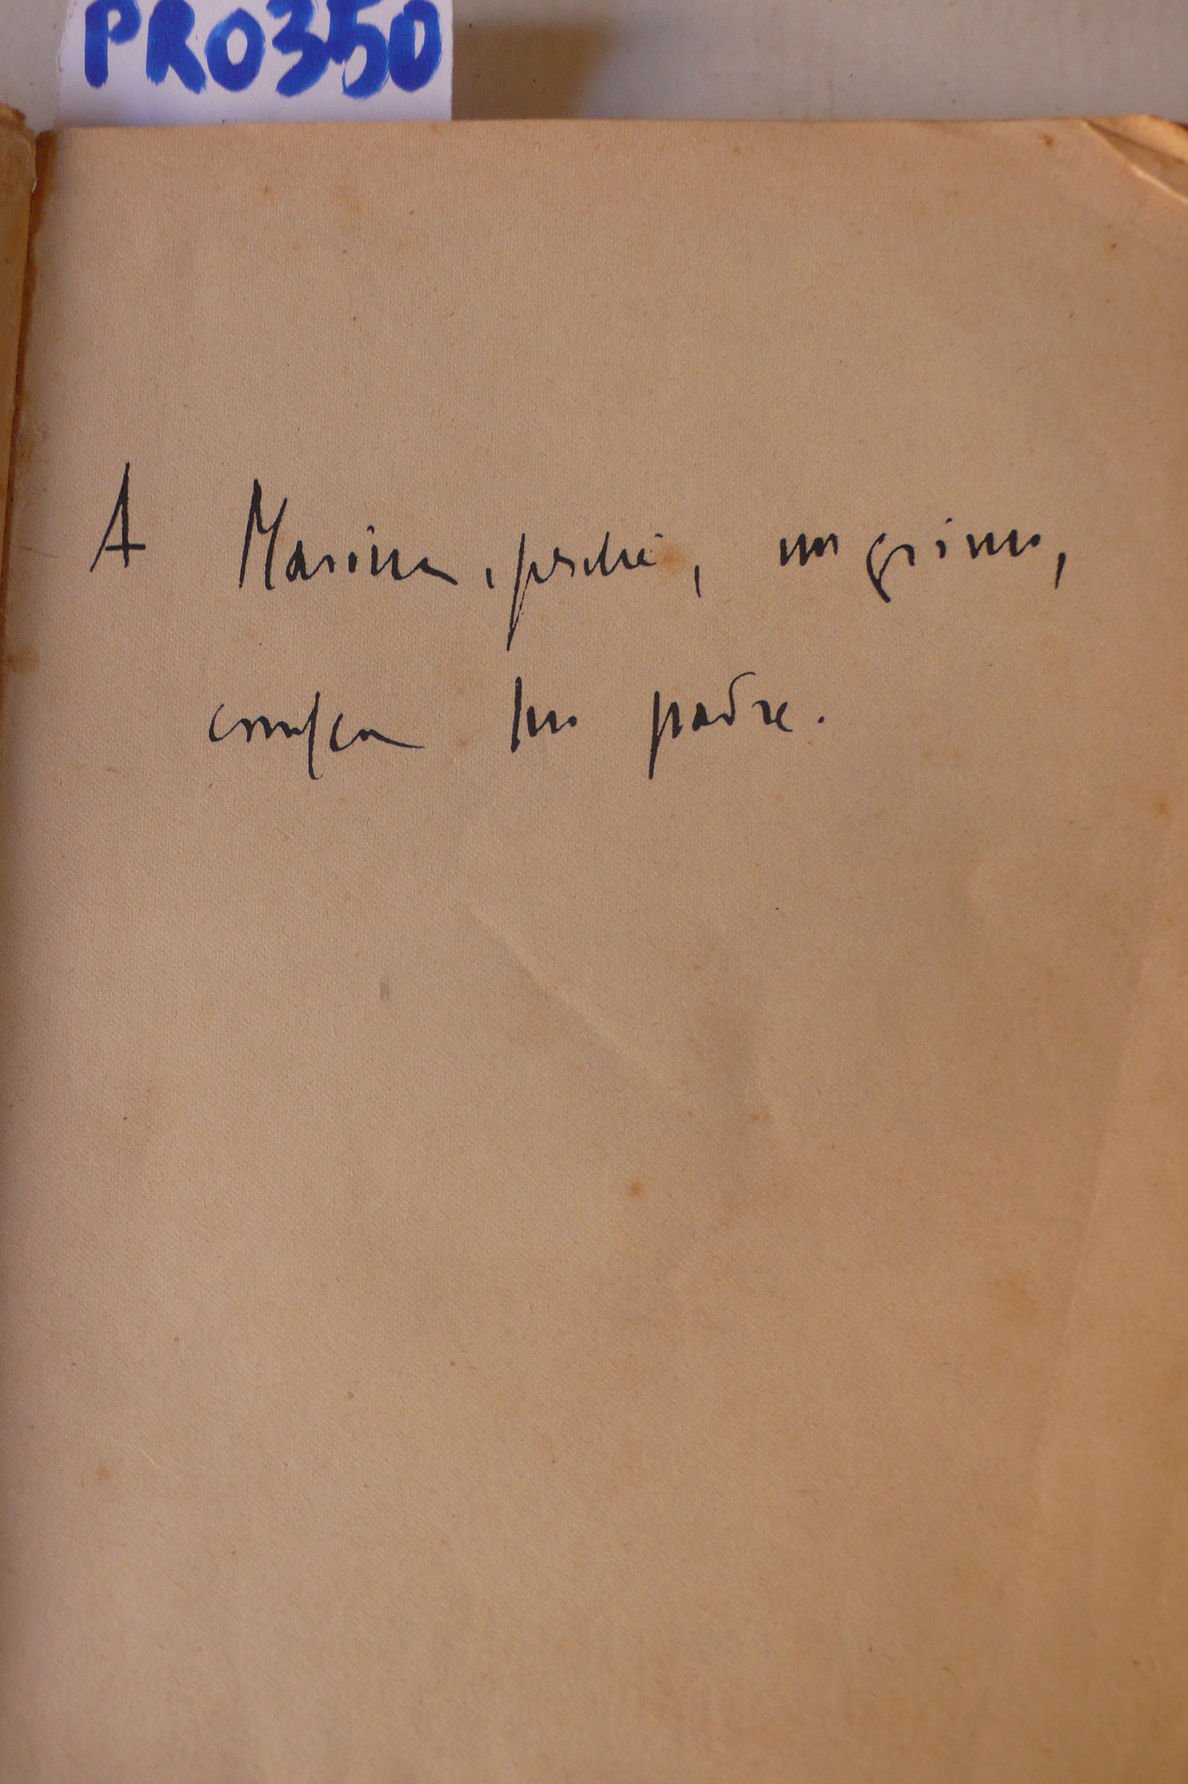 PRO350
A Marina, perché, un giorno,
conosca suo padre.